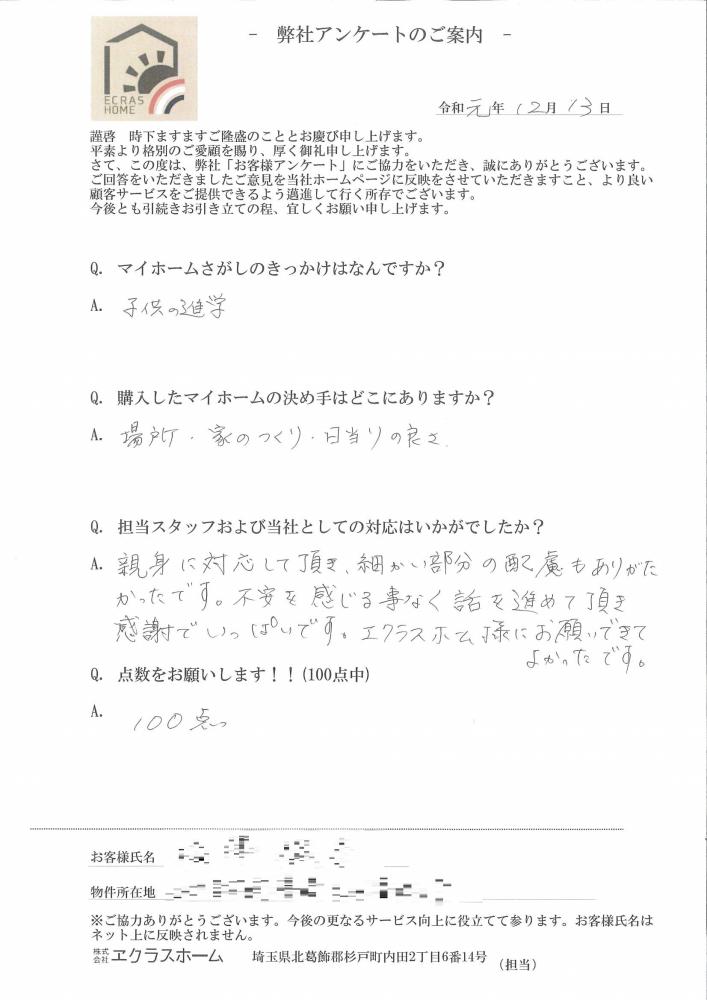 - 弊社アンケートのご案内 -
ECRAS
HOME
令和元年12月13日
謹啓 時下ますますご隆盛のこととお慶び申し上げます。
平素より格別のご愛顧を賜り、厚く御礼申し上げます。
さて、この度は、弊社「お客様アンケート」にご協力をいただき、誠にありがとうございます。
ご回答をいただきましたご意見を当社ホームページに反映をさせていただきますこと、より良い
顧客サービスをご提供できるよう邁進して行く所存でございます。
今後とも引続きお引き立ての程、宜しくお願い申し上げます。
Q. マイホームさがしのきっかけはなんですか？
A. 子供の進学
Q. 購入したマイホームの決め手はどこにありますか？
A. 場所・家のつくり・日当りの良さ.
Q. 担当スタッフおよび当社としての対応はいかがでしたか？
A. 親身に対応して頂き、細かい部分の配慮もありがた
かったです。不安を感じる事なく話を進めて頂き
感謝でいっぱいです。エクラスホーム様にお願いできて
よかったです。
Q. 点数をお願いします！！(100点中)
A. 100点っ
お客様氏名
物件所在地
※ご協力ありがとうございます。今後の更なるサービス向上に役立てて参ります。お客様氏名は
ネット上に反映されません。
株式会社ヱクラスホーム 埼玉県北葛飾郡杉戸町内田2丁目6番14号 （担当）